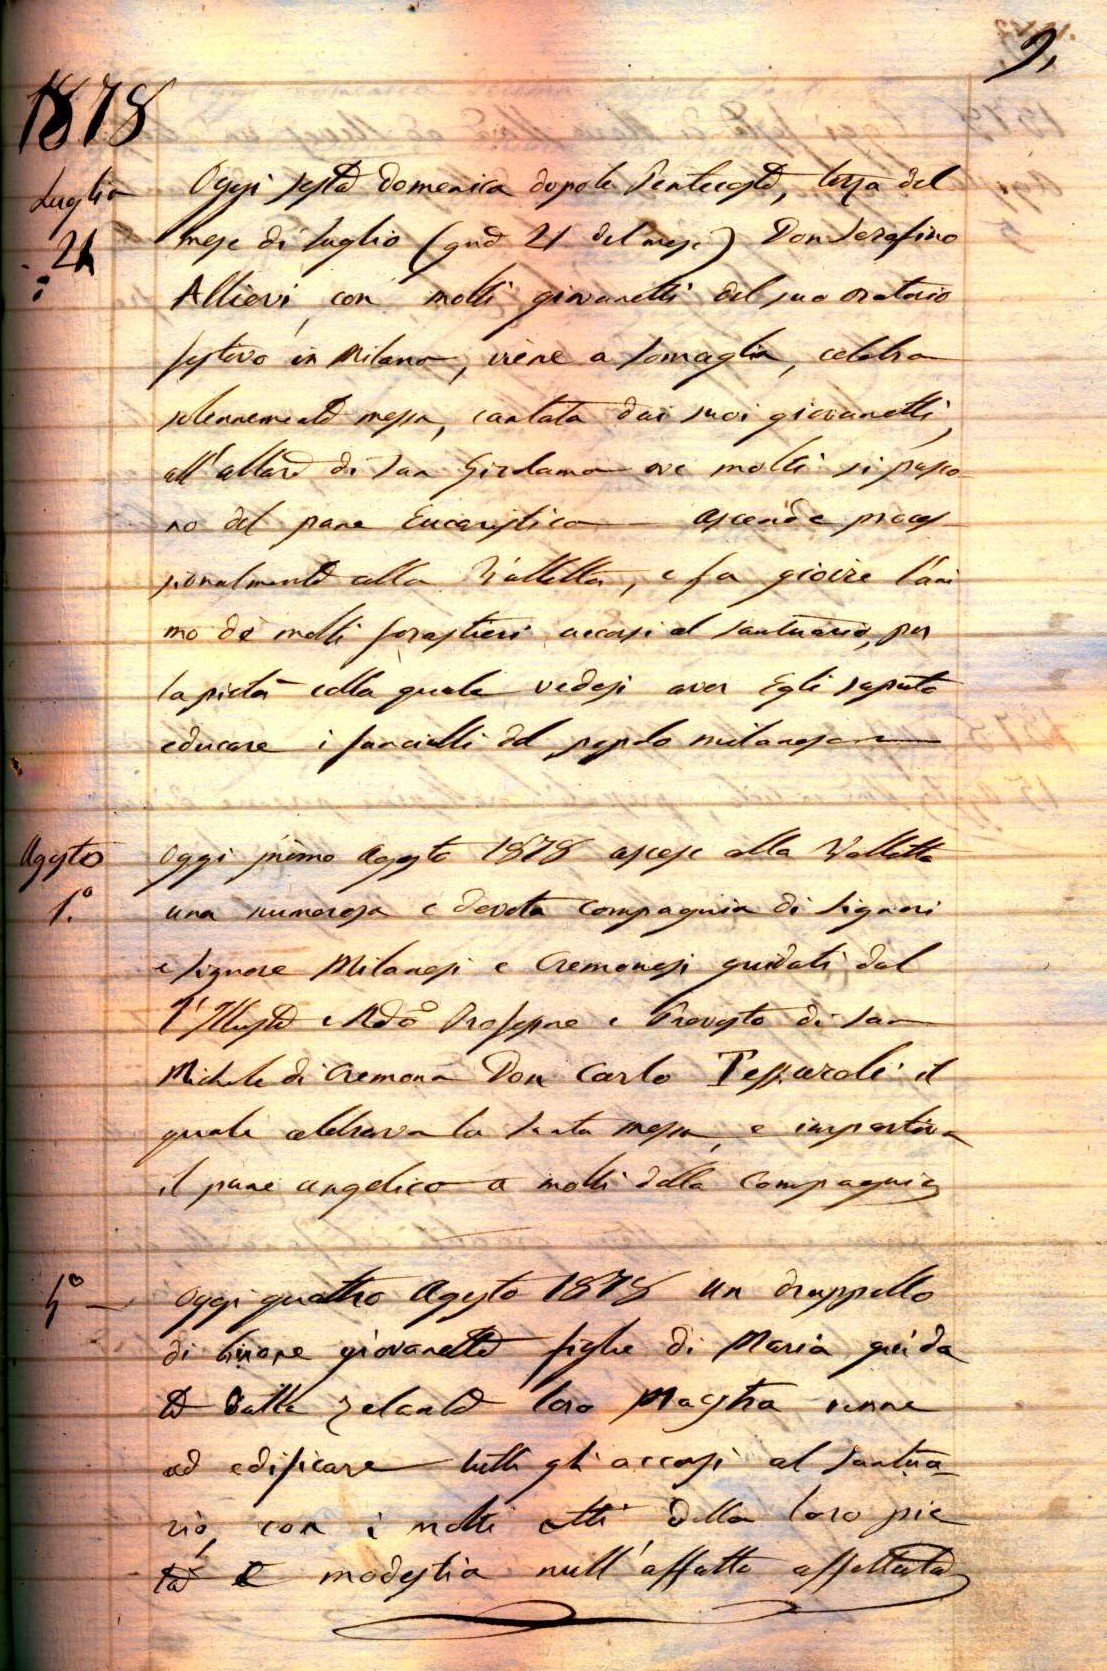 9,
1878
Luglio
21
Oggi sesta domenica dopo la Pentecoste, terza del
mese di luglio (giud 21 del mese) Don Serafino
Allievi, con molti giovanetti del suo oratorio
festivo in Milano, viene a Somaglia, celebra
solennemente messa, cantata dai suoi giovanetti,
all'altare di San Girolamo ove molti si pasco-
no del pane Eucaristico ascende proces-
sionalmente alla Valletta, e fa gioire l'ani
mo di molti forastieri accorsi al santuario, per
la pietà colla quale vedesi aver Egli saputo
educare i fanciulli del popolo milanese
Agosto
1.º
Oggi primo Agosto 1878 ascese alla Valletta
una numerosa e devota compagnia di Signori
e Signore Milanesi e Cremonesi guidati dal
l'Illustre e Rdo Professore e Prevosto di San
Michele di Cremona Don Carlo Tessaroli il
quale celebrava la santa messa, e impartiva
il pane angelico a molti della Compagnia
4º
Oggi quattro Agosto 1878 un drappello
di buone giovanette figlie di Maria guida
te dalla zelante loro Maestra venne
ad edificare tutti gli accorsi al santua-
rio, con i molti atti della loro pie
tà e modestia null'affatto affettata